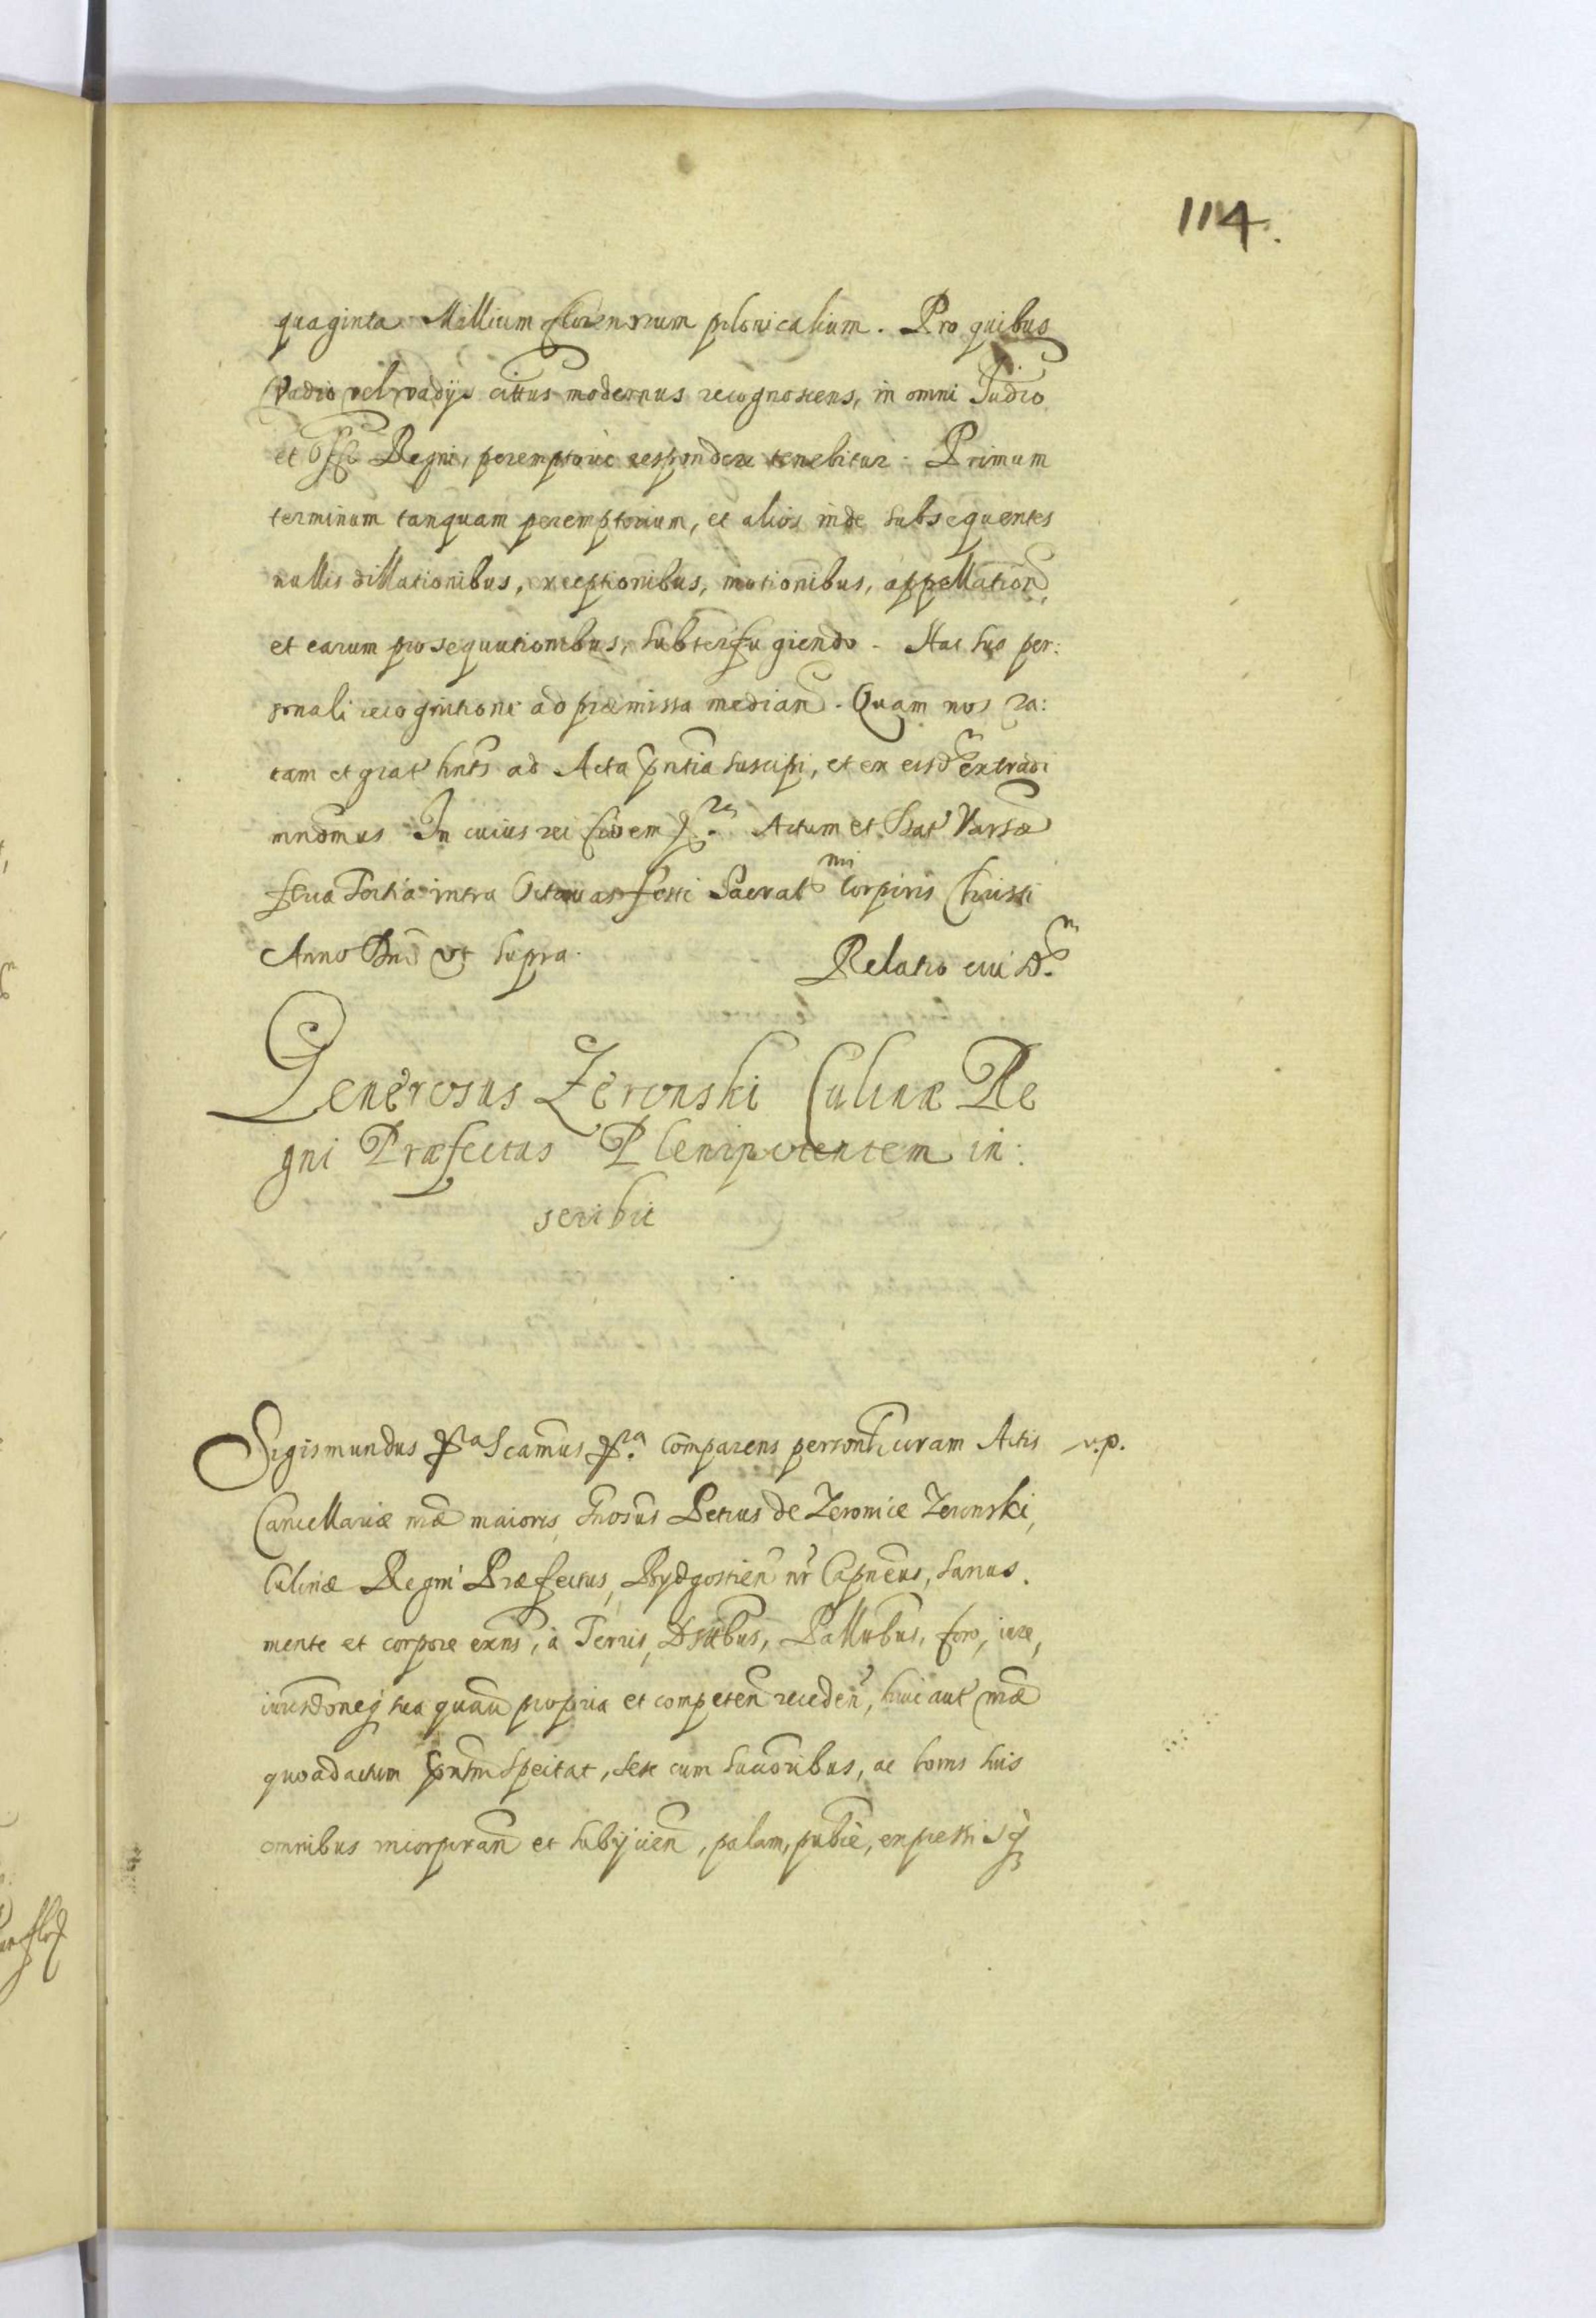 114.
quaginta Millium florenorum polonicalium. Pro quibus
Vadio vel vadijs cittus modernus recognoscens, in omni Judio
et Offo Regni, peremptorie respondere tenebitur. Primum
terminum tanquam peremptorium, et alios inde subsequentes
nullis dillationibus, exceptionibus, motionibus, appellation,
et earum prosequutionibus, subterfugiendo. Hac sua per:
sonali recognitione ad præmissa median. Quam nos ra:
tam et grat hnts ad Acta pntia suscipi, et ex eisd extradi
mndmus In cuius rei fidem Actum et Dat Varsæ
feria Tertia intra Octauas festi Sacrat mi Corporis Christi
Anno Dni vt supra.
Relatio eiusd.
Generosus Zeronski Culinæ Re
gni Præfectus Plenipotentem in:
scribit
Sigismundus &ra Scamus &ra. Comparens personlr coram Actis
v.p.
Cancellariæ nræ maioris, Gnosus Petrus de Zeronice Zeronski,
Culinæ Regni Præfectus, Bydgostien nr Capneus, sanus
mente et corpore exns, à Terris, Dsttbus, Pallubus, foro, iure,
iurisdoneq sua quauis propria et competen receden, huic aut nræ
quoad actum pntm spectat, sese cum succoribus, ac bonis suis
omnibus incorporan et subijcien, palam, publce, expressisq